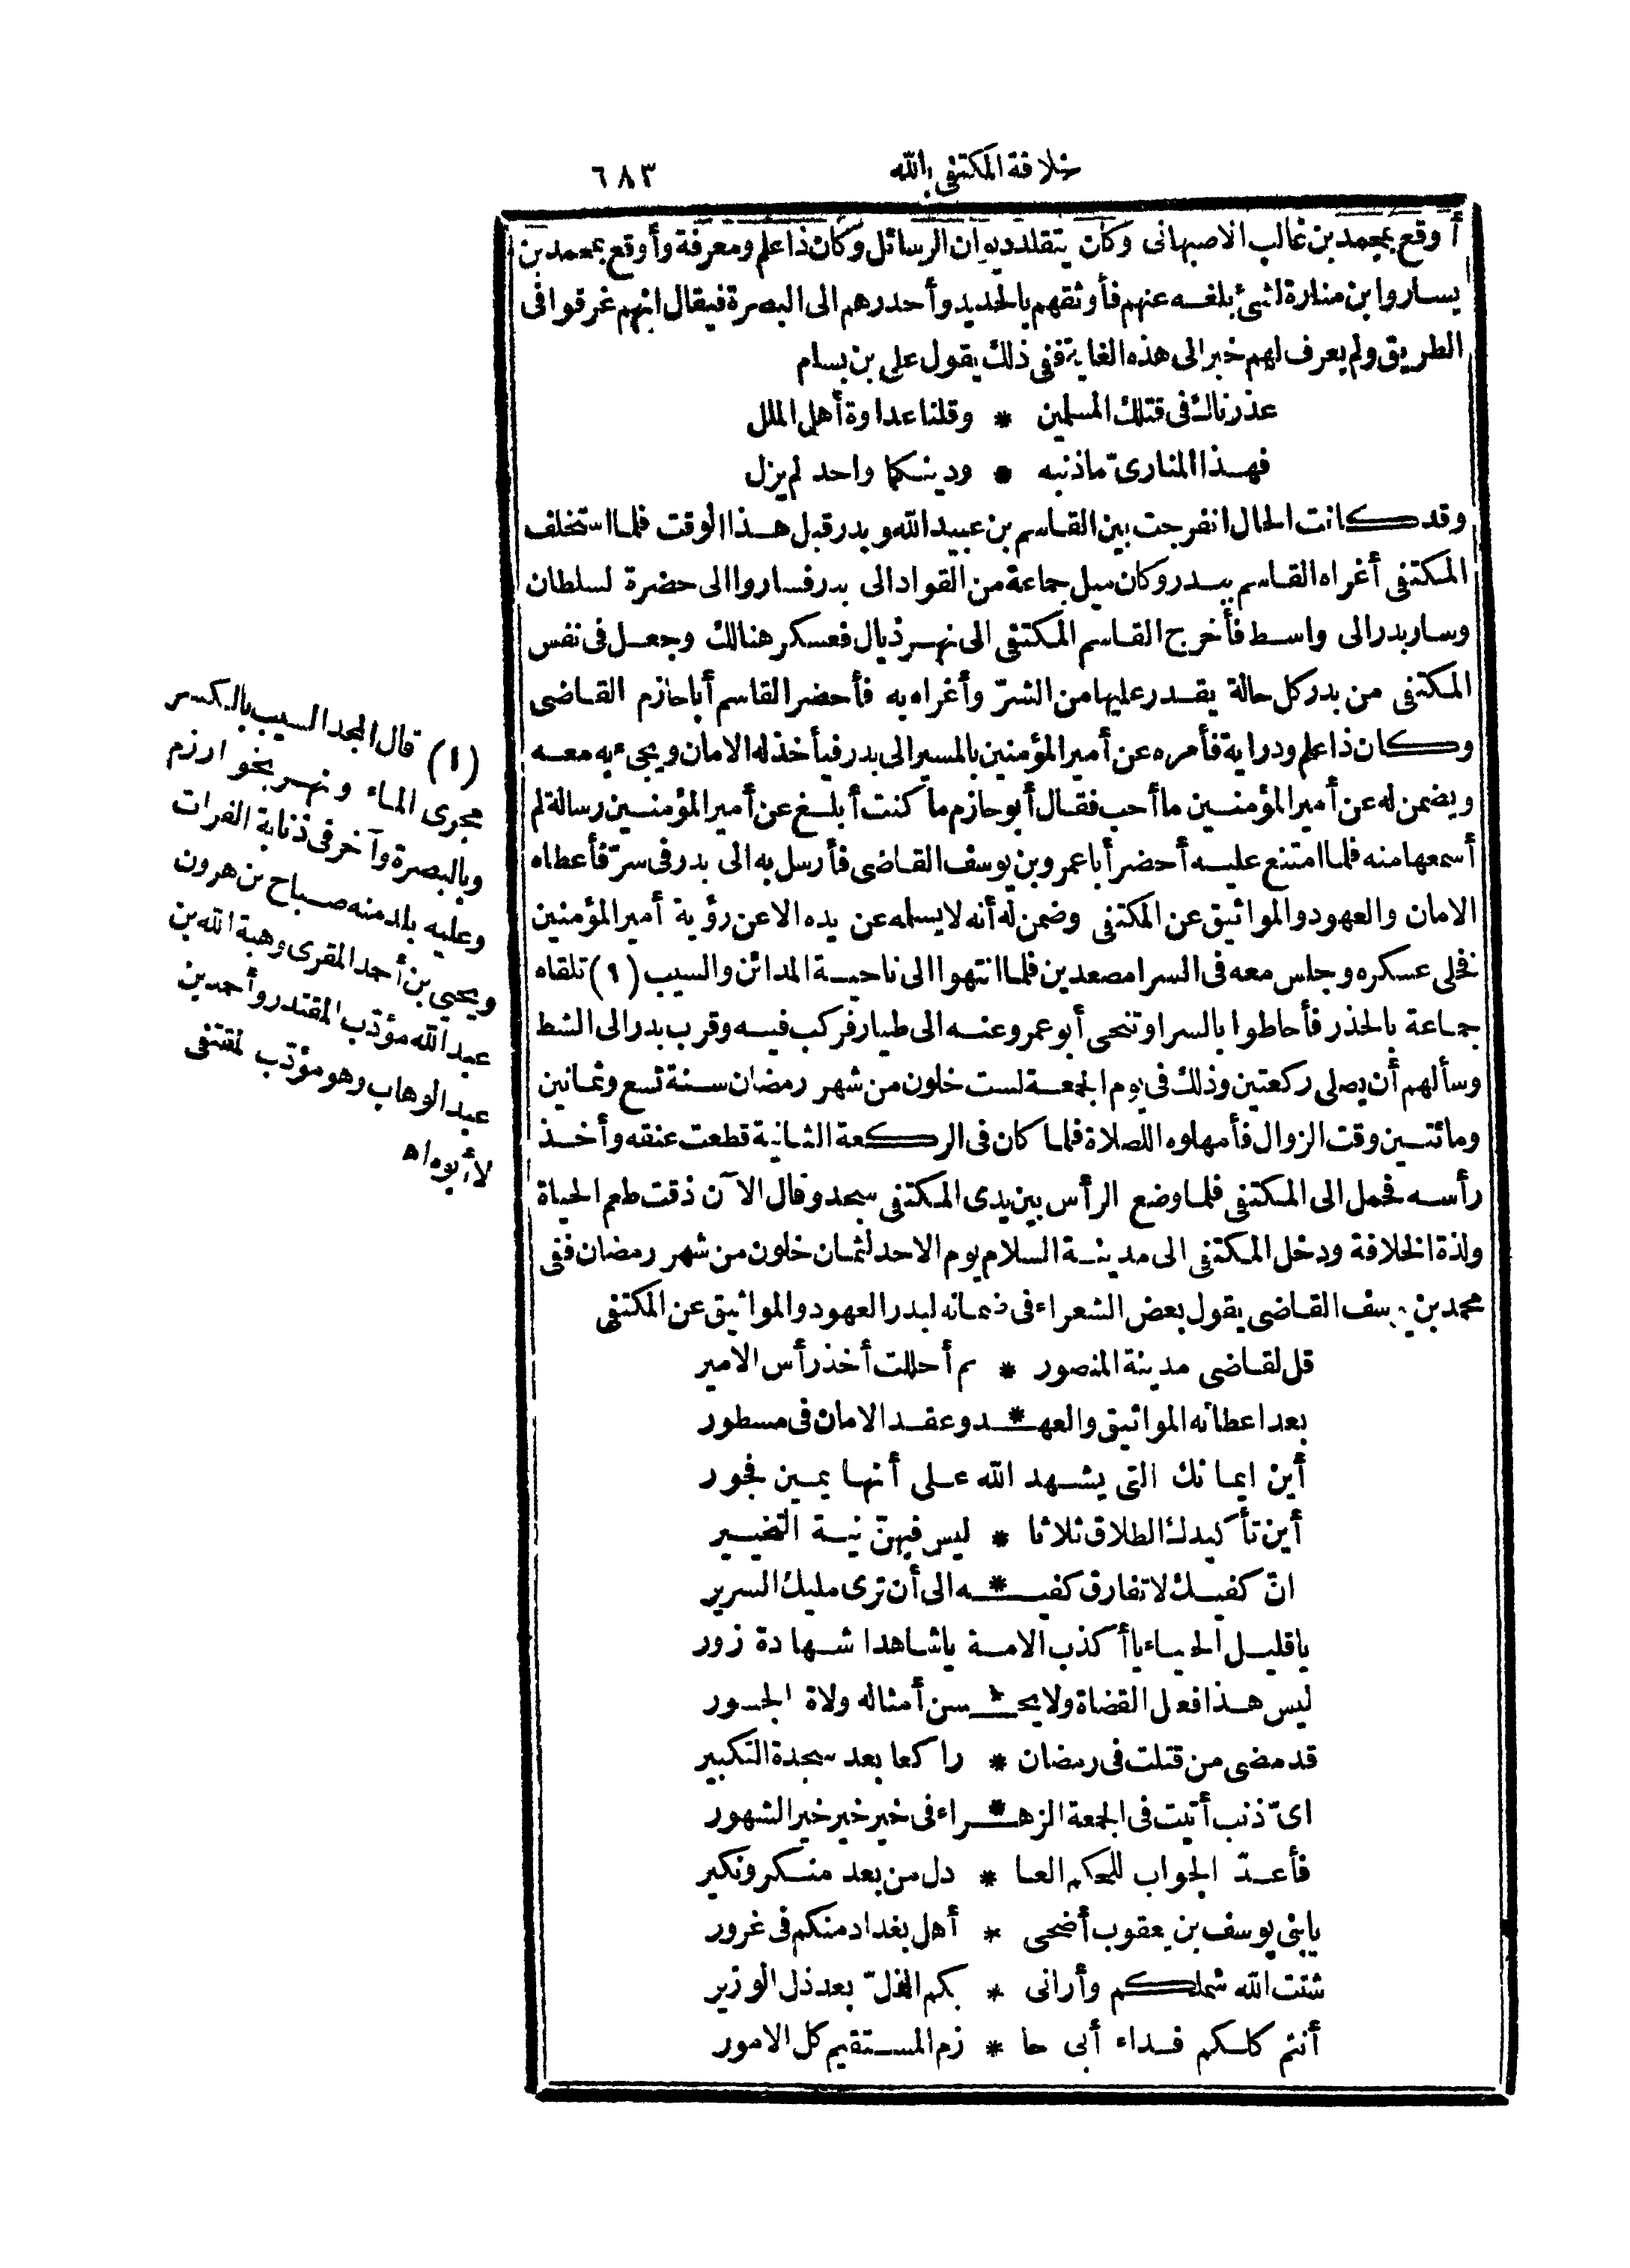 خلافة المكتفى بالله ٦٨٣
أوقع بمحمد بن غالب الاصبهانى وكان يتقلد ديوان الرسائل وكان ذا علم ومعرفة وأوقع بمحمد بن
يسار وابن منارة لشئ بلغه عنهم فأوثقهم بالحديد وأحدرهم الى البصرة فيقال انهم غرقوا فى
الطريق ولم يعرف لهم خبر الى هذه الغاية ففى ذلك يقول على بن بسام
عذرناك فى قتلك المسلمين * وقلنا عداوة أهل الملل
فهذا المنارىّ ما ذنبه * ودينكما واحد لم يزل
وقد كانت الحال انفرجت بين القاسم بن عبيد الله وبدر قبل هذا الوقت فلما استخلف
المكتفى أغراه القاسم ببدر وكان ميل جماعة من القواد الى بدر فساروا الى حضرة لسلطان
وسار بدر الى واسط فأخرج القاسم المكتفى الى نهر ذيال فعسكر هنالك وجعل فى نفس
المكتفى من بدر كل حالة يقدر عليها من الشرّ وأغراه به فأحضر القاسم أبا حازم القاضى
وكان ذا علم ودراية فأمره عن أمير المؤمنين بالمسير الى بدر فيأخذ له الامان ويجىء به معه
ويضمن له عن أمير المؤمنين ما أحب فقال أبو حازم ما كنت أبلغ عن أمير المؤمنين رسالة لم
أسمعها منه فلما امتنع عليه أحضر أبا عمرو بن يوسف القاضى فأرسل به الى بدر فى سرّ فأعطاه
الامان والعهود والمواثيق عن المكتفى وضمن له أنه لا يسلمه عن يده الا عن رؤية أمير المؤمنين
فخلى عسكره وجلس معه فى السرا مصعدين فلما انتهوا الى ناحية المدائن والسيب (١) تلقاه
جماعة بالحذر فأحاطوا بالسرا وتنحى أبو عمرو عنه الى طيار فركب فيه وقرب بدر الى الشط
وسألهم أن يصلى ركعتين وذلك فى يوم الجمعة لست خلون من شهر رمضان سنة تسع وثمانين
ومائتين وقت الزوال فأمهلوه للصلاة فلما كان فى الركعة الثانية قطعت عنقه وأخذ
رأسه فحمل الى المكتفى فلما وضع الرأس بين يدى المكتفى سجد وقال الآن ذقت طعم الحياة
ولذة الخلافة ودخل المكتفى الى مدينة السلام يوم الاحد لثمان خلون من شهر رمضان ففى
محمد بن يوسف القاضى يقول بعض الشعراء فى ضمانه لبدر العهود والمواثيق عن المكتفى
قل لقاضى مدينة المنصور * بم أحللت أخذ رأس الامير
بعد اعطائه المواثيق والعهـ * ـد وعقد الامان فى مسطور
أين ايمانك التى يشهد الله على أنها يمين فجور
أين تأكيدك الطلاق ثلاثا * ليس فيهنّ نية التخيير
انّ كفيك لا تفارق كفيـ * ـه الى أن ترى مليك السرير
يا قليل الحياء يا أكذب الامة يا شاهدا شهادة زور
ليس هذا فعل القضاة ولا يحـ * ـسن أمثاله ولاة الجسور
قد مضى من قتلت فى رمضان * راكعا بعد سجدة التكبير
اىّ ذنب أتيت فى الجمعة الزهـ * ـراء فى خير خير خير الشهور
فأعدّ الجواب للحكم العا * دل من بعد منكر ونكير
يا بنى يوسف بن يعقوب أضحى * أهل بغداد منكم فى غرور
شتت الله شملكم وأرانى * بكم الذلّ بعد ذل الوزير
أنتم كلكم فداء أبى حا * زم المستقيم كل الامور
(١) قال المجد السيب بالكسر
مجرى الماء ونهر بخوارزم
وبالبصرة وآخر فى ذنابة الفرات
وعليه بلد منه صباح بن هرون
ويحيى بن أحمد المقرى وهبة الله بن
عبد الله مؤدّب المقتدر وأحمد بن
عبد الوهاب وهو مؤدّب لمقتفى
لا أبوه اه